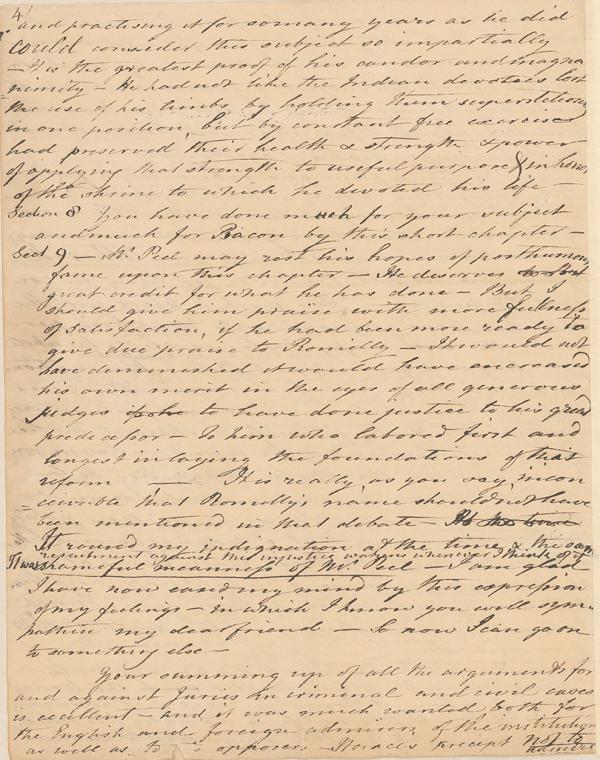 4
and practising it for so many years as he did
could consider this subject so impartially
– It is the greatest proof of his candor and magna
nimity – He had not like the Indian devotees lost
the use of his limbs by holding them superstitiously
in one position, but by constant free exercise
had preserved their health & strength & power
of applying that strength to useful purpose & in honor
of the shrine to which he devoted his life –
Section 8 You have done much for your subject
and much for Bacon by this short chapter –
Sect 9 – Mr. Peel may rest his hopes of posthumous
fame upon this chapter – He deserves
great credit for what he has done – But I
should give him praise with more fullness
of satisfaction, if he had been more ready to
give due praise to Romilly – It would not
have diminished it would have encreased
his own merit in the eyes of all generous
judges to have done justice to his great
predecessor – to him who labored first and
longest in laying the foundations of that
reform – It is really as you say, incon
ceivable that Romilly's name should not have
been mentioned in that debate –
It roused my indignation at the time & the same
resentment against this injustice wakens whenever I think of it
It was shameful meanness of Mr. Peel – I am glad
I have now eased my mind by this expression
of my feelings – in which I know you will sym-
pathise my dear friend – So now I can go on
to something else –
Your summing up of all the arguments for
and against Juries in criminal and civil cases
is excellent – and it was much wanted both for
the English and foreign admirers of the institution
as well as to its opposers – Horace's precept not to
admire